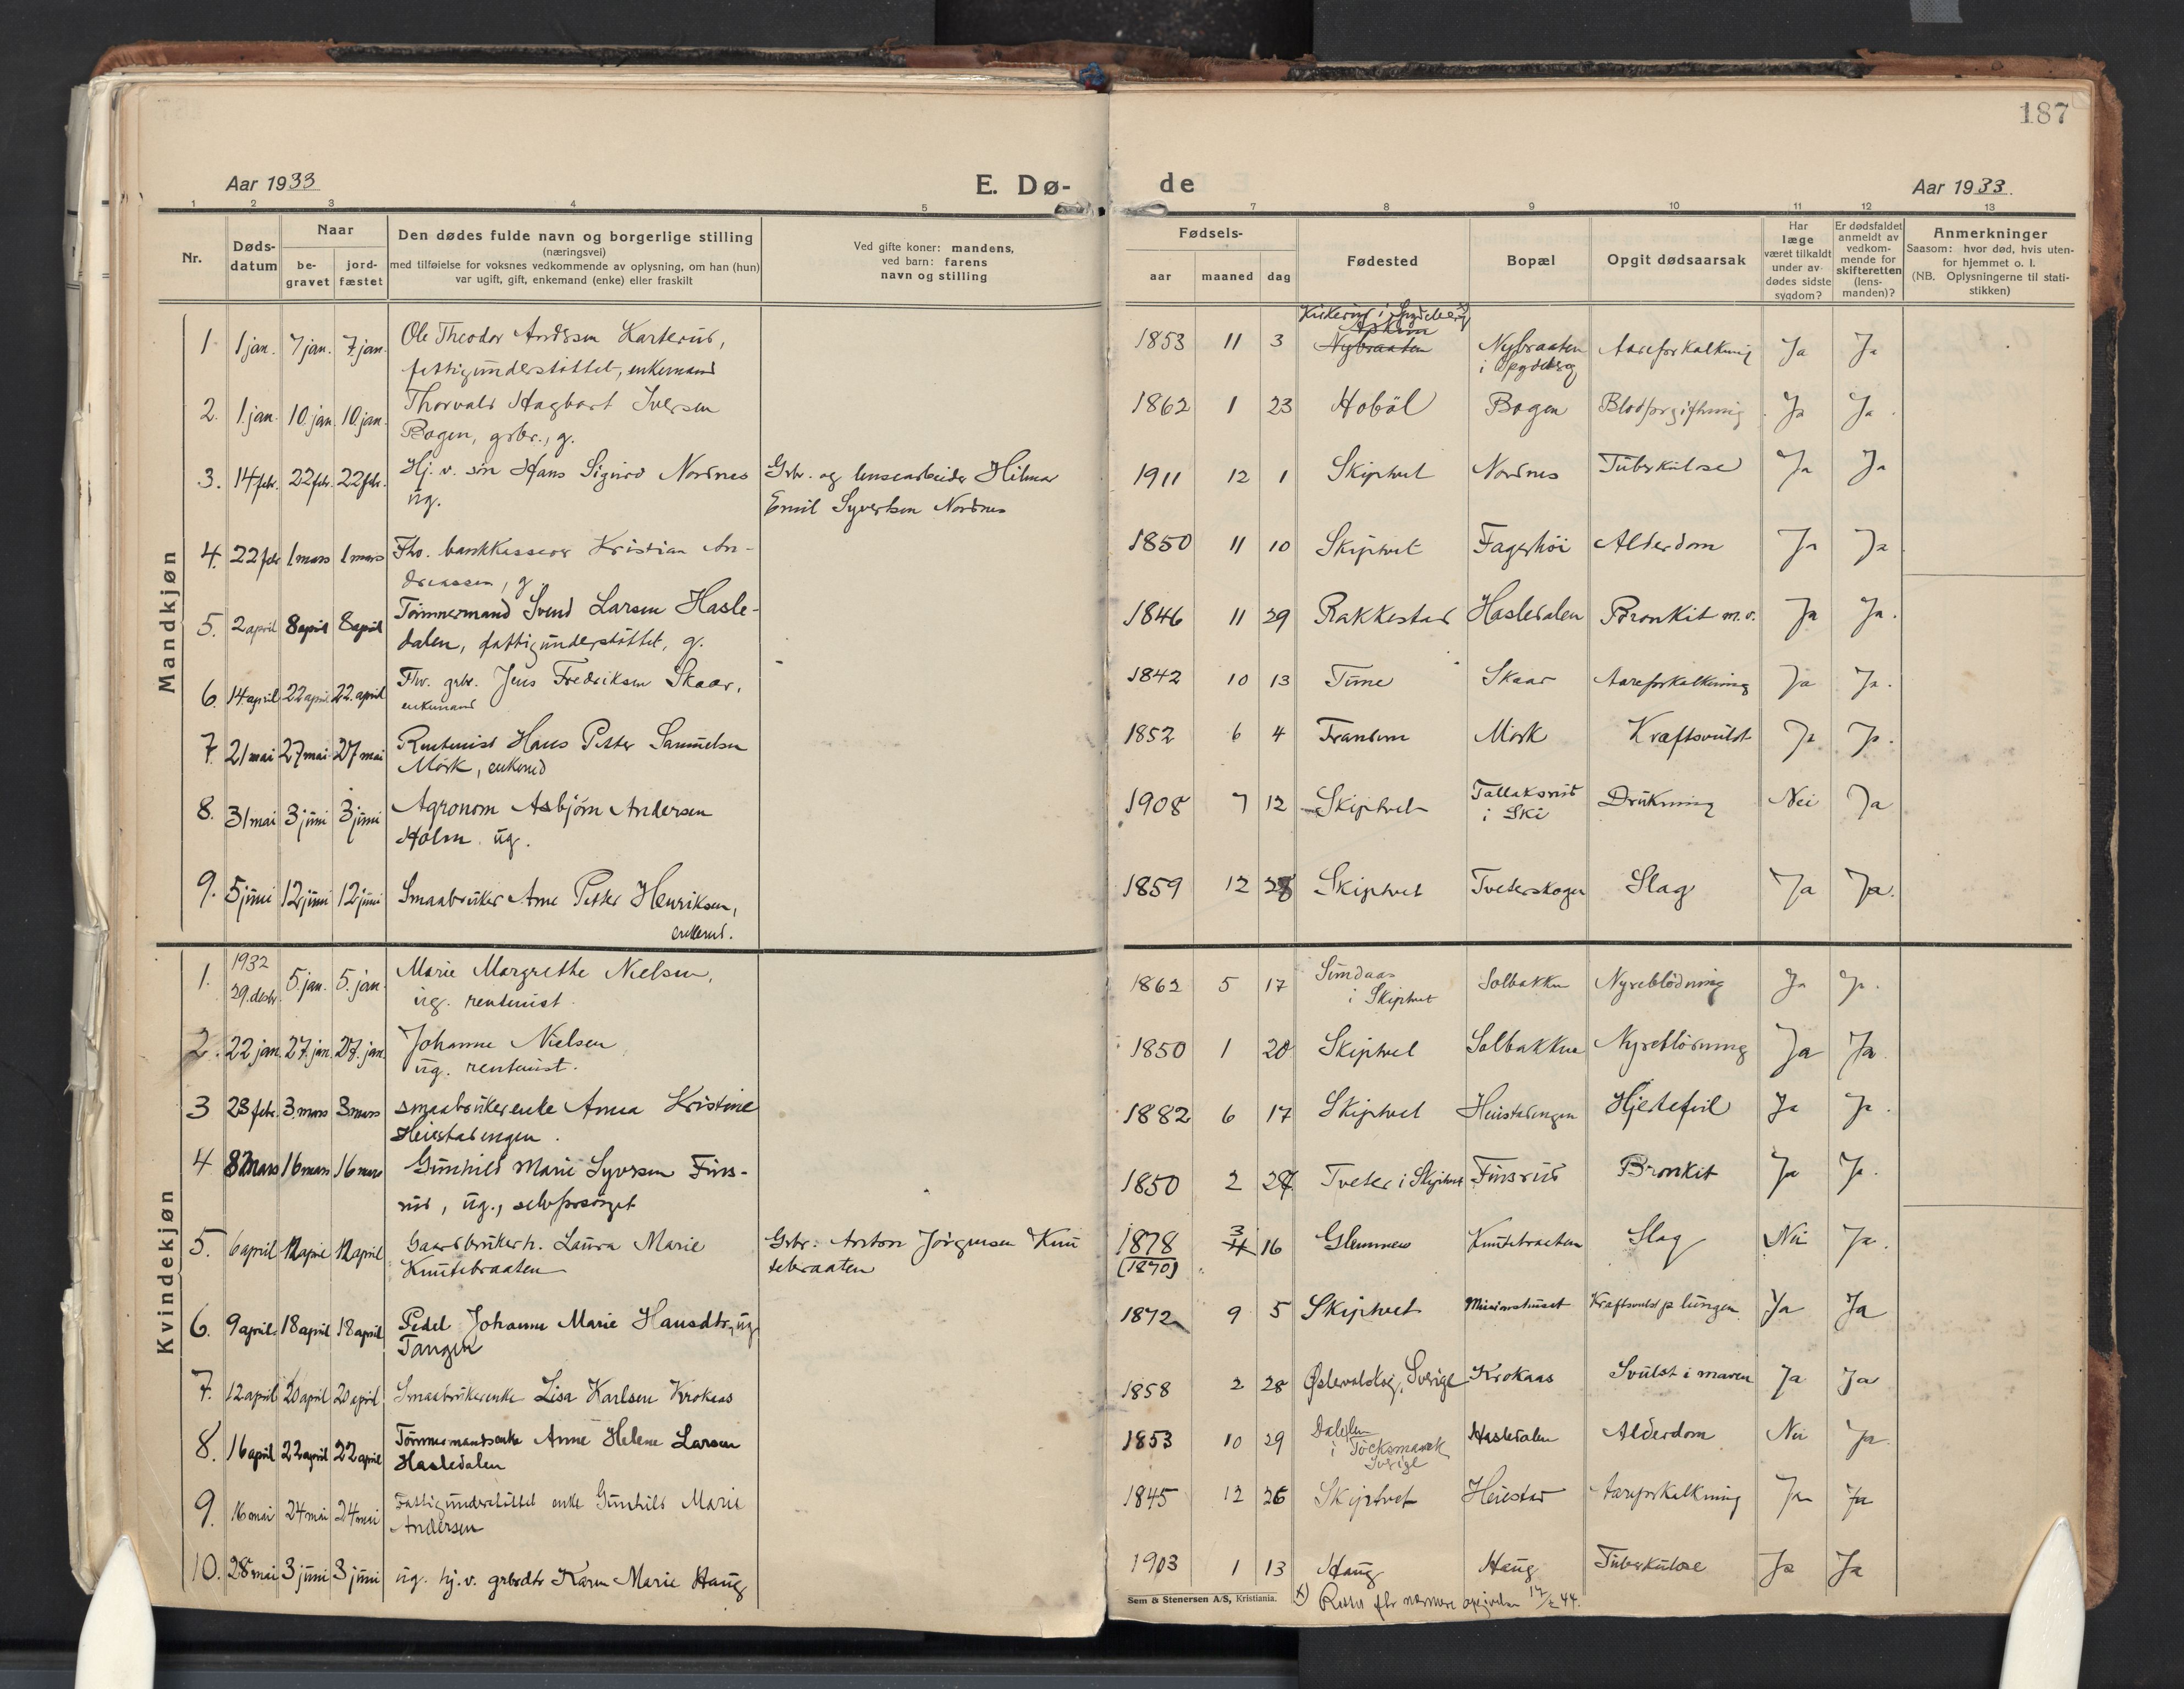 187
Aar 1933
E. Dø-
de
Aar 1933.
1 2 3 4 5
7 8 9 10 11 12 13
Nr.
Døds-
datum
Naar
be-
gravet
jord-
fæstet
Den dødes fulde navn og borgerlige stilling
(næringsvei)
med tilføielse for voksnes vedkommende av oplysning, om han (hun)
var ugift, gift, enkemand (enke) eller fraskilt
Ved gifte koner: mandens,
ved barn: farens
navn og stilling
Fødsels-
aar maaned dag
Fødested
Bopæl
Opgit dødsaarsak
Har
læge
været tilkaldt
under av-
dødes sidste
sygdom?
Er dødsfaldet
anmeldt av
vedkom-
mende for
skifteretten
(lens-
manden)?
Anmerkninger
Saasom: hvor død, hvis uten-
for hjemmet o. l.
(NB. Oplysningerne til stati-
stikken)
Mandkjøn
1 1 jan. 7 jan. 7 jan. Ole Theodor
fattigunderstöttet, enkemand
Spydeberg
Askim
1853 11 3 Nybraaten Nybraaten Aareforkalkning Ja Ja
i Spydeberg
2. 1. jan. 10. jan. 10. jan. Thorvald Hagbart Iversen
Bogen, grbr., g.
1862 1 23 Hobøl Bogen Blodforgiftning Ja Ja
3. 14 febr. 22 febr. 22 febr. Hj. v. søn Hans Sigurd Nordnes
ug.
Grbr. og lensearbeider Hilmar
Emil Syvertsen Nordnes
1911 12 1 Skiptvet Nordnes Tuberkulose Ja Ja
4. 22 febr 1 mars 1 mars Fhv. bankkasserer Kristian An-
dreassen, g.
1850 11 10 Skiptvet Fagerhöi Alderdom Ja Ja
5. 2 april 8 april 8 april Tömmermand Svend Larsen Hasle-
dalen, fattigunderstöttet, g.
1846 11 29 Rakkestad Hasledalen Bronkit m.v. Ja Ja.
6. 14 april 22 april 22. april Fhv. grbr. Jens Fredriksen Skaar,
enkemand
1842 10 13 Tune Skaar Aareforkalkning Ja Ja.
7. 21 mai 27 mai 27 mai Rentenist Hans Petter Samuelsen
Mörk, enkemd
1852 6 4 Mörk Kraftsvulst Ja Ja.
8. 31 mai 3 juni 3 juni Agronom Asbjörn Andersen
Holm. ug.
1908 7 12 Skiptvet Tallaksrud Drukning Nei Ja
i Ski
9. 5 juni 12 juni 12 juni Smaabruker Arne Petter Henriksen,
enkemd.
1859 12 28 Skiptvet Tveterskogen Slag Ja Ja.
Kvindekjøn
1. 1932
29. desbr. 5. jan. 5. jan. Marie Margrethe Nielsen,
ug. rentenist.
1862 5 17 Sundaas Solbakken Nyreblödning Ja Ja.
i Skiptvet
2. 22 jan. 27. jan. 27. jan. Johanne Nielsen
ug. rentenist.
1850 1 20 Skiptvet Solbakken Nyreblödning Ja Ja
3 23 febr. 3 mars 3 mars smaabrukerenke Anna Kristine
Heiestadengen.
1882 6 17 Skiptvet Heiestadengen Hjertefeil Ja Ja.
4 8 mars 16 mars 16 mars Gunhild Marie Syversen Fins-
rud, ug., selvforsörget
1850 2 Tveter i Skiptvet Finsrud Bronkit Ja Ja.
5. 6 april 12 april 12 april Gaardbrukerh. Laura Marie
Knutebraaten
Grbr. Anton Jörgensen Knu
tebraaten
1878 3 16 Glemmen Knutebraaten Slag Nei Ja.
(1870)
6. 9 april. 18 april 18 april Pedel Johanne Marie Hansdtr, ug
Tangen
1872 9 5 Skiptvet Missionshuset Kraftsvulst p lungen Ja Ja
7. 12 april 20 april 20 april Smaabrukerenke Lisa Karlsen Krokaas
1858 2 28 Østervalskog, Sverige Krokaas Svulst i maven Ja Ja
8. 16 april 22 april 22 april Tömmermandsenke Anne Helene Larsen
Hasledalen
1853 10 29 Hasledalen Alderdom Nei Ja.
i Töcksmark
Sverige
9. 16 mai 24 mai 24 mai Fattigunderstöttet enke Gunhild Marie
Andersen
1845 12 26 Skiptvet Heiestad Aareforkalkning Ja Ja
10. 28 mai 3 juni 3 juni ug. hj.v. grbrdtr Karen Marie Haug
1903 1 13 Haug Haug Tuberkulose Ja Ja
Sem & Stenersen A/S, Kristiania.
x) Rettet nærmere 44.